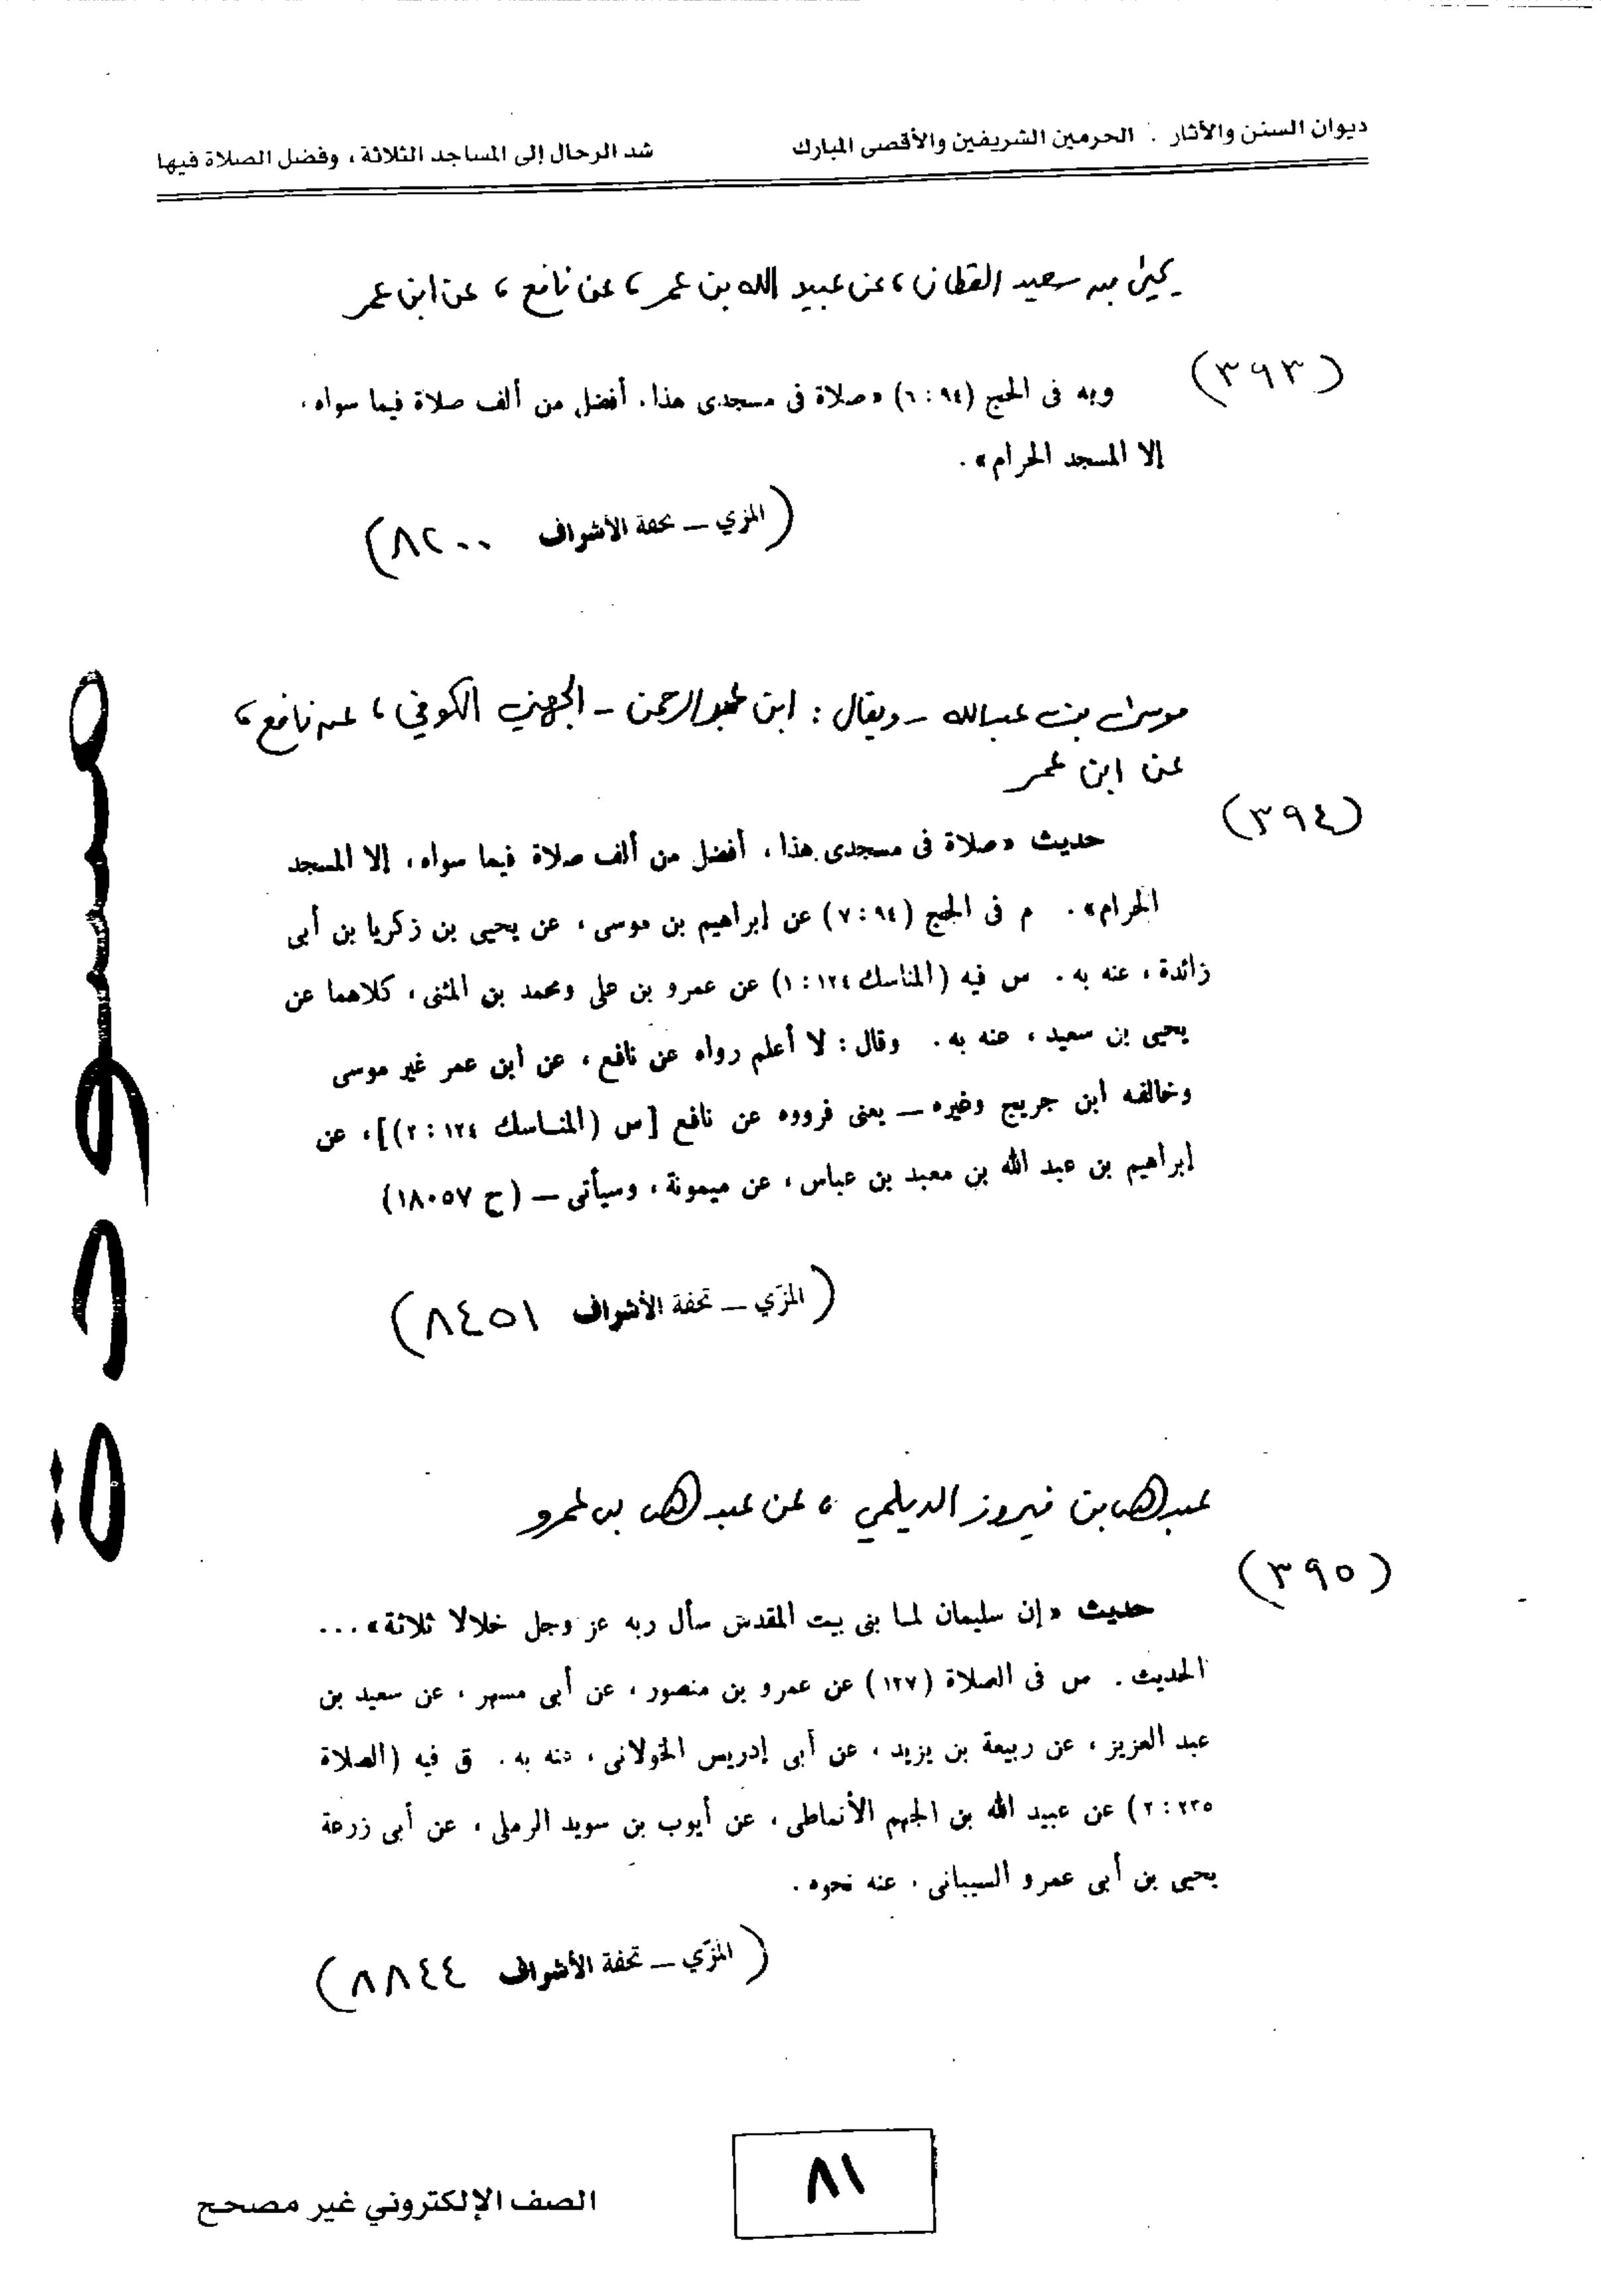 ديوان السنن والآثار . الحرمين الشريفين والأقصى المبارك شد الرحال إلى المساجد الثلاثة ، وفضل الصلاة فيها
يحيى بن سعيد القطان ، عن عبيد الله بن عمر ، عن نافع ، عن ابن عمر
(٣٩٣)
وبه فى الحج (٩٤ : ٦) «صلاة فى مسجدى هذا، أفضل من ألف صلاة فيما سواه ،
إلا المسجد الحرام» .
(المزي — تحفة الأشراف ٨٢٠٠)
موسى بن عبدالله - ويقال : ابن عبدالرحمن - الجهني الكوفي ، عن نافع ،
عن ابن عمر
(٣٩٤)
حديث «صلاة فى مسجدى هذا ، أفضل من ألف صلاة فيما سواه ، إلا المسجد
الحرام» . م فى الحج (٩٤ : ٧) عن إبراهيم بن موسى ، عن يحيى بن زكريا بن أبى
زائدة ، عنه به . س فيه (المناسك ١٢٤ : ١) عن عمرو بن على ومحمد بن المثنى ، كلاهما عن
يحيى بن سعيد ، عنه به . وقال : لا أعلم رواه عن نافع ، عن ابن عمر غير موسى
وخالفه ابن جريج وغيره — يعنى فرووه عن نافع [س (المناسك ١٢٤ : ٢)] ، عن
إبراهيم بن عبد الله بن معبد بن عباس ، عن ميمونة ، وسيأتى — (ح ١٨٠٥٧)
(المزّي — تحفة الأشراف ٨٤٥١)
عبدالله بن فيروز الديلمي ، عن عبدالله بن عمرو
(٣٩٥)
حديث «إن سليمان لما بنى بيت المقدس سأل ربه عز وجل خلالا ثلاثة» ...
الحديث . س فى الصلاة (١٢٧) عن عمرو بن منصور ، عن أبى مسهر ، عن سعيد بن
عبد العزيز ، عن ربيعة بن يزيد ، عن أبى إدريس الخولانى ، عنه به . ق فيه (الصلاة
٢٣٥ : ٢) عن عبيد الله بن الجهم الأنماطى ، عن أيوب بن سويد الرملى ، عن أبى زرعة
يحيى بن أبى عمرو السيبانى ، عنه نحوه .
(المزّي — تحفة الأشراف ٨٨٤٤)
مسودة
٨١
الصف الإلكتروني غير مصحح